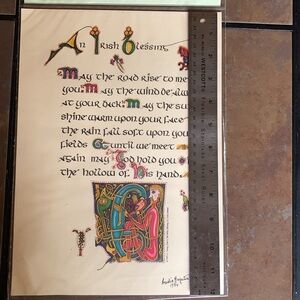 An Irish Blessing
May the road rise to me
you. May the wind be alw
at your back. May the su
shine warm upon your face
the rain fall soft upon you
fields & until we meet
again may God hold you
the hollow of his hand.
WESTCOTT® Flexible Stainless Steel Ruler